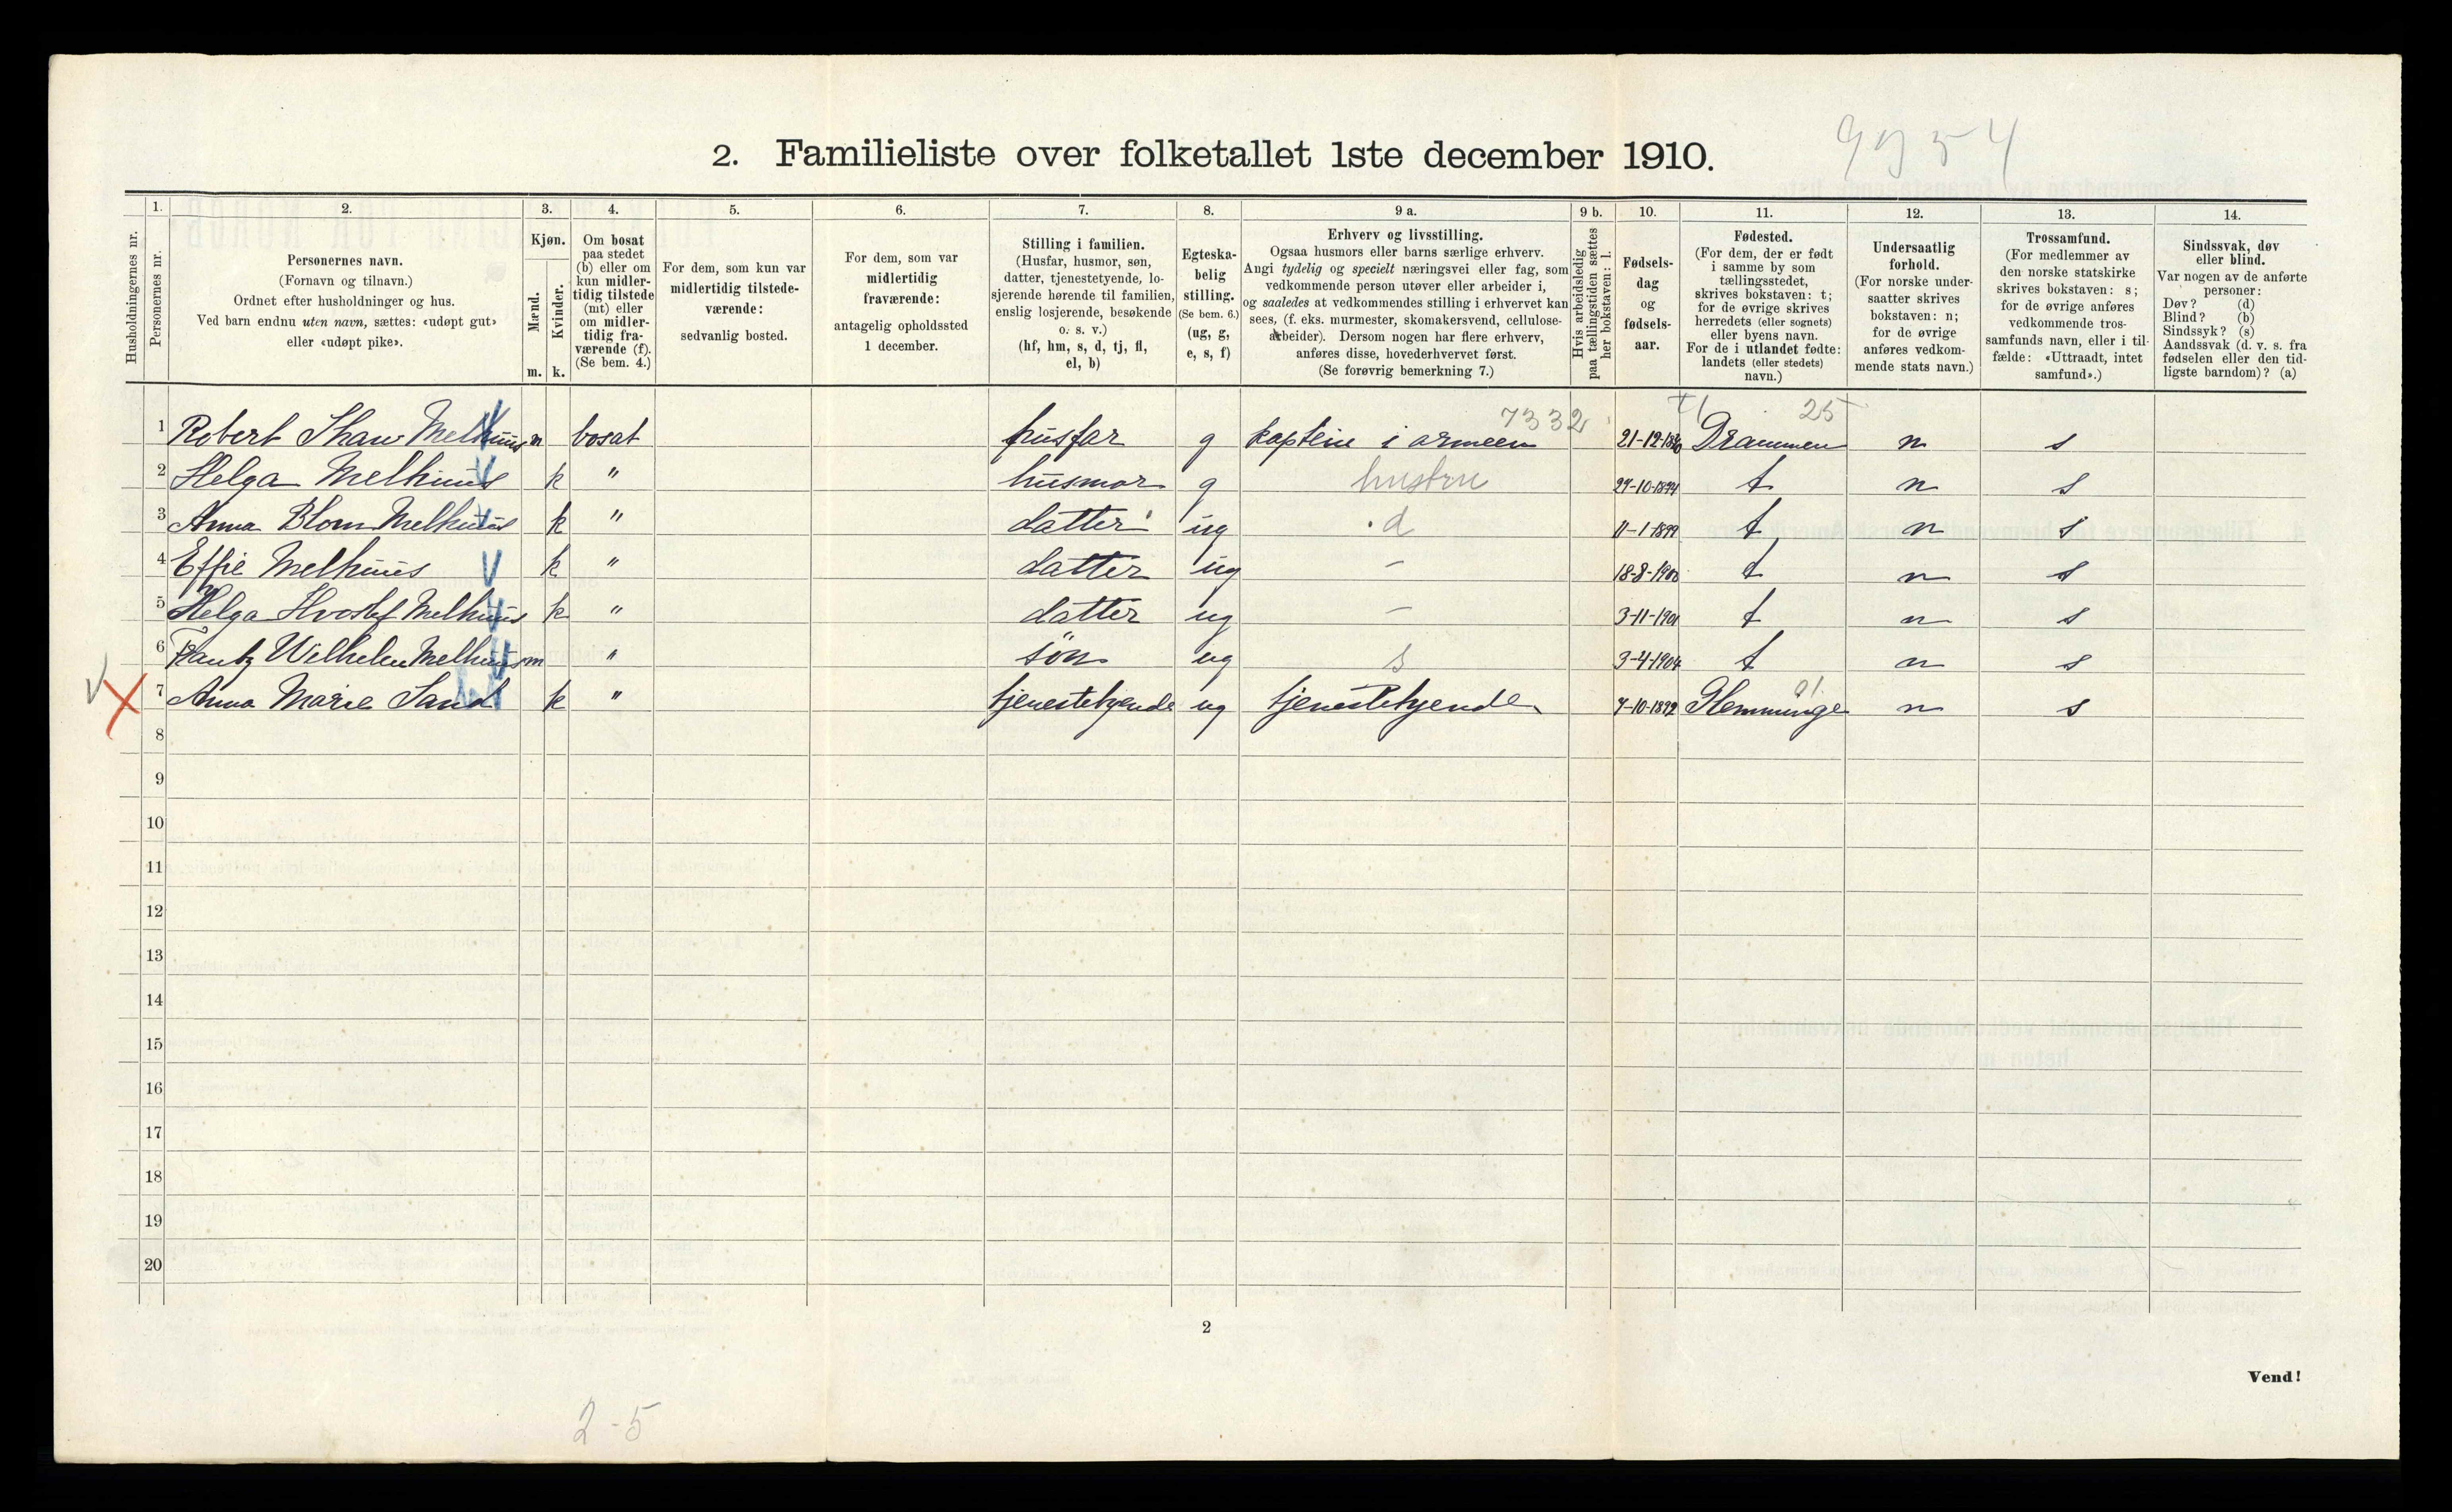 2. Familieliste over folketallet 1ste december 1910.
9954
Husholdningernes nr.
1.
Personernes nr.
2.
Personernes navn.
(Fornavn og tilnavn.)
Ordnet efter husholdninger og hus.
Ved barn endnu uten navn, sættes: «udøpt gut»
eller «udøpt pike».
3.
Kjøn.
Mænd.
Kvinder.
m. k.
4.
Om bosat
paa stedet
(b) eller om
kun midler-
tidig tilstede
(mt) eller
om midler-
tidig fra-
værende (f).
(Se bem. 4.)
5.
For dem, som kun var
midlertidig tilstede-
værende:
sedvanlig bosted.
6.
For dem, som var
midlertidig
fraværende:
antagelig opholdssted
1 december.
7.
Stilling i familien.
(Husfar, husmor, søn,
datter, tjenestetyende, lo-
sjerende hørende til familien,
enslig losjerende, besøkende
o. s. v.)
(hf, hm, s, d, tj, fl,
el, b)
8.
Egteska-
belig
stilling.
(Se bem. 6.)
(ug, g,
e, s, f)
9 a.
Erhverv og livsstilling.
Ogsaa husmors eller barns særlige erhverv.
Angi tydelig og specielt næringsvei eller fag, som
vedkommende person utøver eller arbeider i,
og saaledes at vedkommendes stilling i erhvervet kan
sees, (f. eks. murmester, skomakersvend, cellulose-
arbeider). Dersom nogen har flere erhverv,
anføres disse, hovederhvervet først.
(Se forøvrig bemerkning 7.)
9 b.
Hvis arbeidsledig
paa tællingstiden sættes
her bokstaven: l.
10.
Fødsels-
dag
og
fødsels-
aar.
11.
Fødested.
(For dem, der er født
i samme by som
tællingsstedet,
skrives bokstaven: t;
for de øvrige skrives
herredets (eller sognets)
eller byens navn.
For de i utlandet fødte:
landets (eller stedets)
navn.)
12.
Undersaatlig
forhold.
(For norske under-
saatter skrives
bokstaven: n;
for de øvrige
anføres vedkom-
mende stats navn.)
13.
Trossamfund.
(For medlemmer av
den norske statskirke
skrives bokstaven: s;
for de øvrige anføres
vedkommende tros-
samfunds navn, eller i til-
fælde: «Uttraadt, intet
samfund».)
14.
Sindssvak, døv
eller blind.
Var nogen av de anførte
personer:
Døv? (d)
Blind? (b)
Sindssyk? (s)
Aandssvak (d. v. s. fra
fødselen eller den tid-
ligste barndom)? (a)
7332 25
1 Robert Shaw Melhuus m bosat husfar g kaptein i armeen 21-12-1860 Drammen n s
2 Helga Melhuus k " husmor g hustru 27-10-1874 t n s
3 Anna Blom Melhuus k " datter ug d 11-1-1899 t n s
4 Effie Melhuus k " datter ug - 18-8-1900 t n s
5 Helga Hvoslef Melhuus k " datter ug - 3-11-1901 t n s
6 Frantz Wilhelm Melhuus m " søn ug s 3-4-1904 t n s
01
7 Anna Marie Sand k " tjenestetyende ug tjenestetyende 7-10-1892 Glemminge n s
8
9
10
11
12
13
14
15
16
17
18
19
20
2
Vend!
2-5